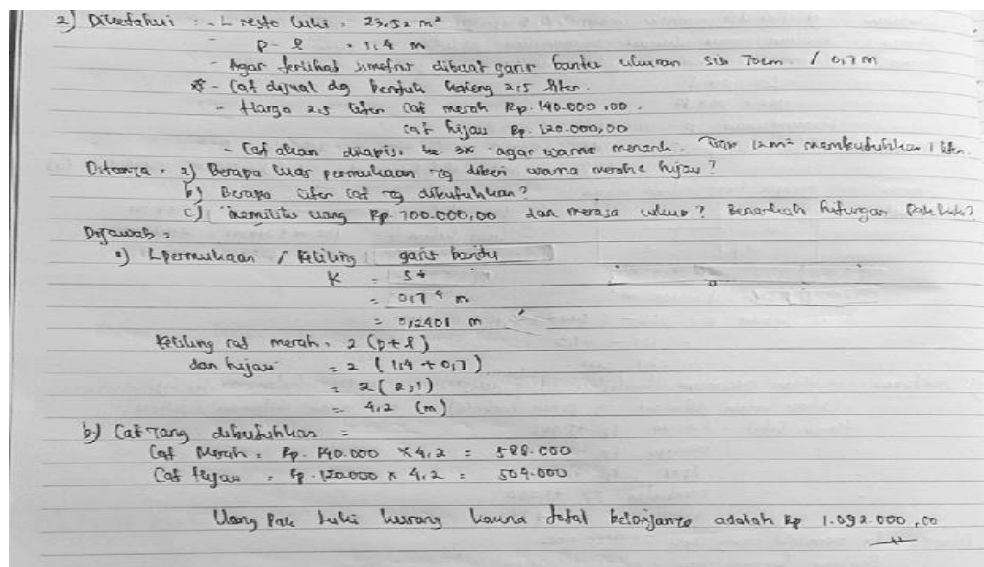 2) Diketahui : - L resto luki = 23,52 m²
- p - l = 1,4 m
- Agar terlihat simetris dibuat garis bantu ukuran sisi 70cm / 0,7 m
- Cat dijual dg bentuk kaleng 2,5 liter.
- Harga 2,5 liter cat merah Rp. 140.000,00.
cat hijau Rp. 120.000,00
- Cat akan dilapisi 3x agar warna menarik. Tiap 12m² membutuhkan 1 liter.
Ditanya : a) Berapa luas permukaan yg diberi warna merah hijau?
b) Berapa liter cat yg dibutuhkan?
c) memiliki uang Rp. 700.000,00 dan merasa cukup? Benarkah hitungan Pak luki?
Dijawab :
a) Lpermukaan / Keliling garis bantu
K = s4
= 0,7⁴ m
= 0,2401 m
Keliling cat merah = 2 (p+l)
dan hijau = 2 (1,4 + 0,7)
= 2 (2,1)
= 4,2 (m)
b) Cat yang dibutuhkan =
Cat Merah = Rp. 140.000 × 4,2 = 588.000
Cat Hijau = Rp. 120.000 × 4,2 = 504.000
Uang Pak Luki kurang karna total belanjanya adalah Rp 1.092.000,00